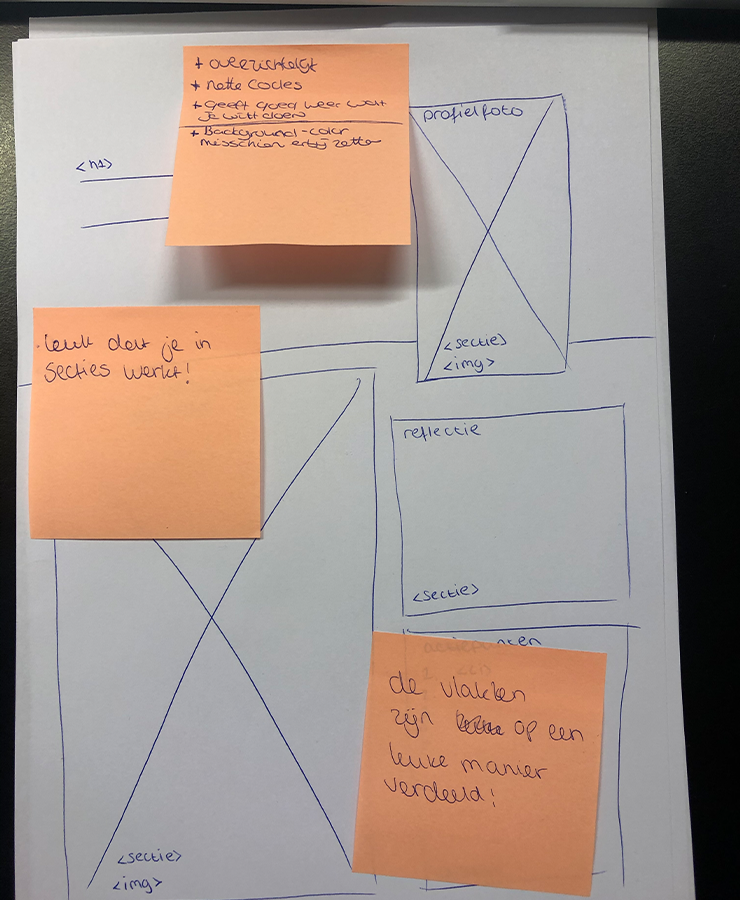 + overzichtelijk
+ nette codes
+ Geeft goed weer wat
je wilt doen
+ Background-color
misschien erbij zetten
profielfoto
<h1>
<sectie>
<img>
leuk dat je in
secties werkt!
reflectie
<sectie>
actiepunten
de vlakken
zijn op een
leuke manier
verdeeld!
<sectie>
<img>